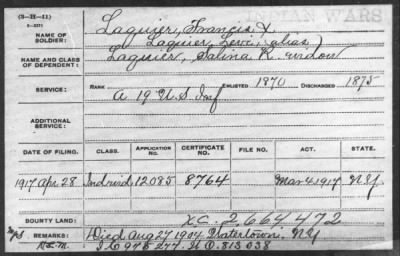 WARS
(3-H-11)
NAME OF SOLDIER: Laquier, Francis X
Laquier, Levi, (alias)
NAME AND CLASS OF DEPENDENT: Laquier, Salina K. widow
SERVICE: RANK ENLISTED 1870 DISCHARGED 1875
A 19" U.S. Inf
ADDITIONAL SERVICE:
DATE OF FILING. CLASS. APPLICATION NO. CERTIFICATE NO. FILE NO. ACT. STATE.
1917 Apr 28 Indwid 12085 8764 Mar 4 1917 N.Y.
BOUNTY LAND: XC. 2664472
REMARKS: Died Aug 27 1904 Watertown, NY
I.C 975277. W.O. 813038